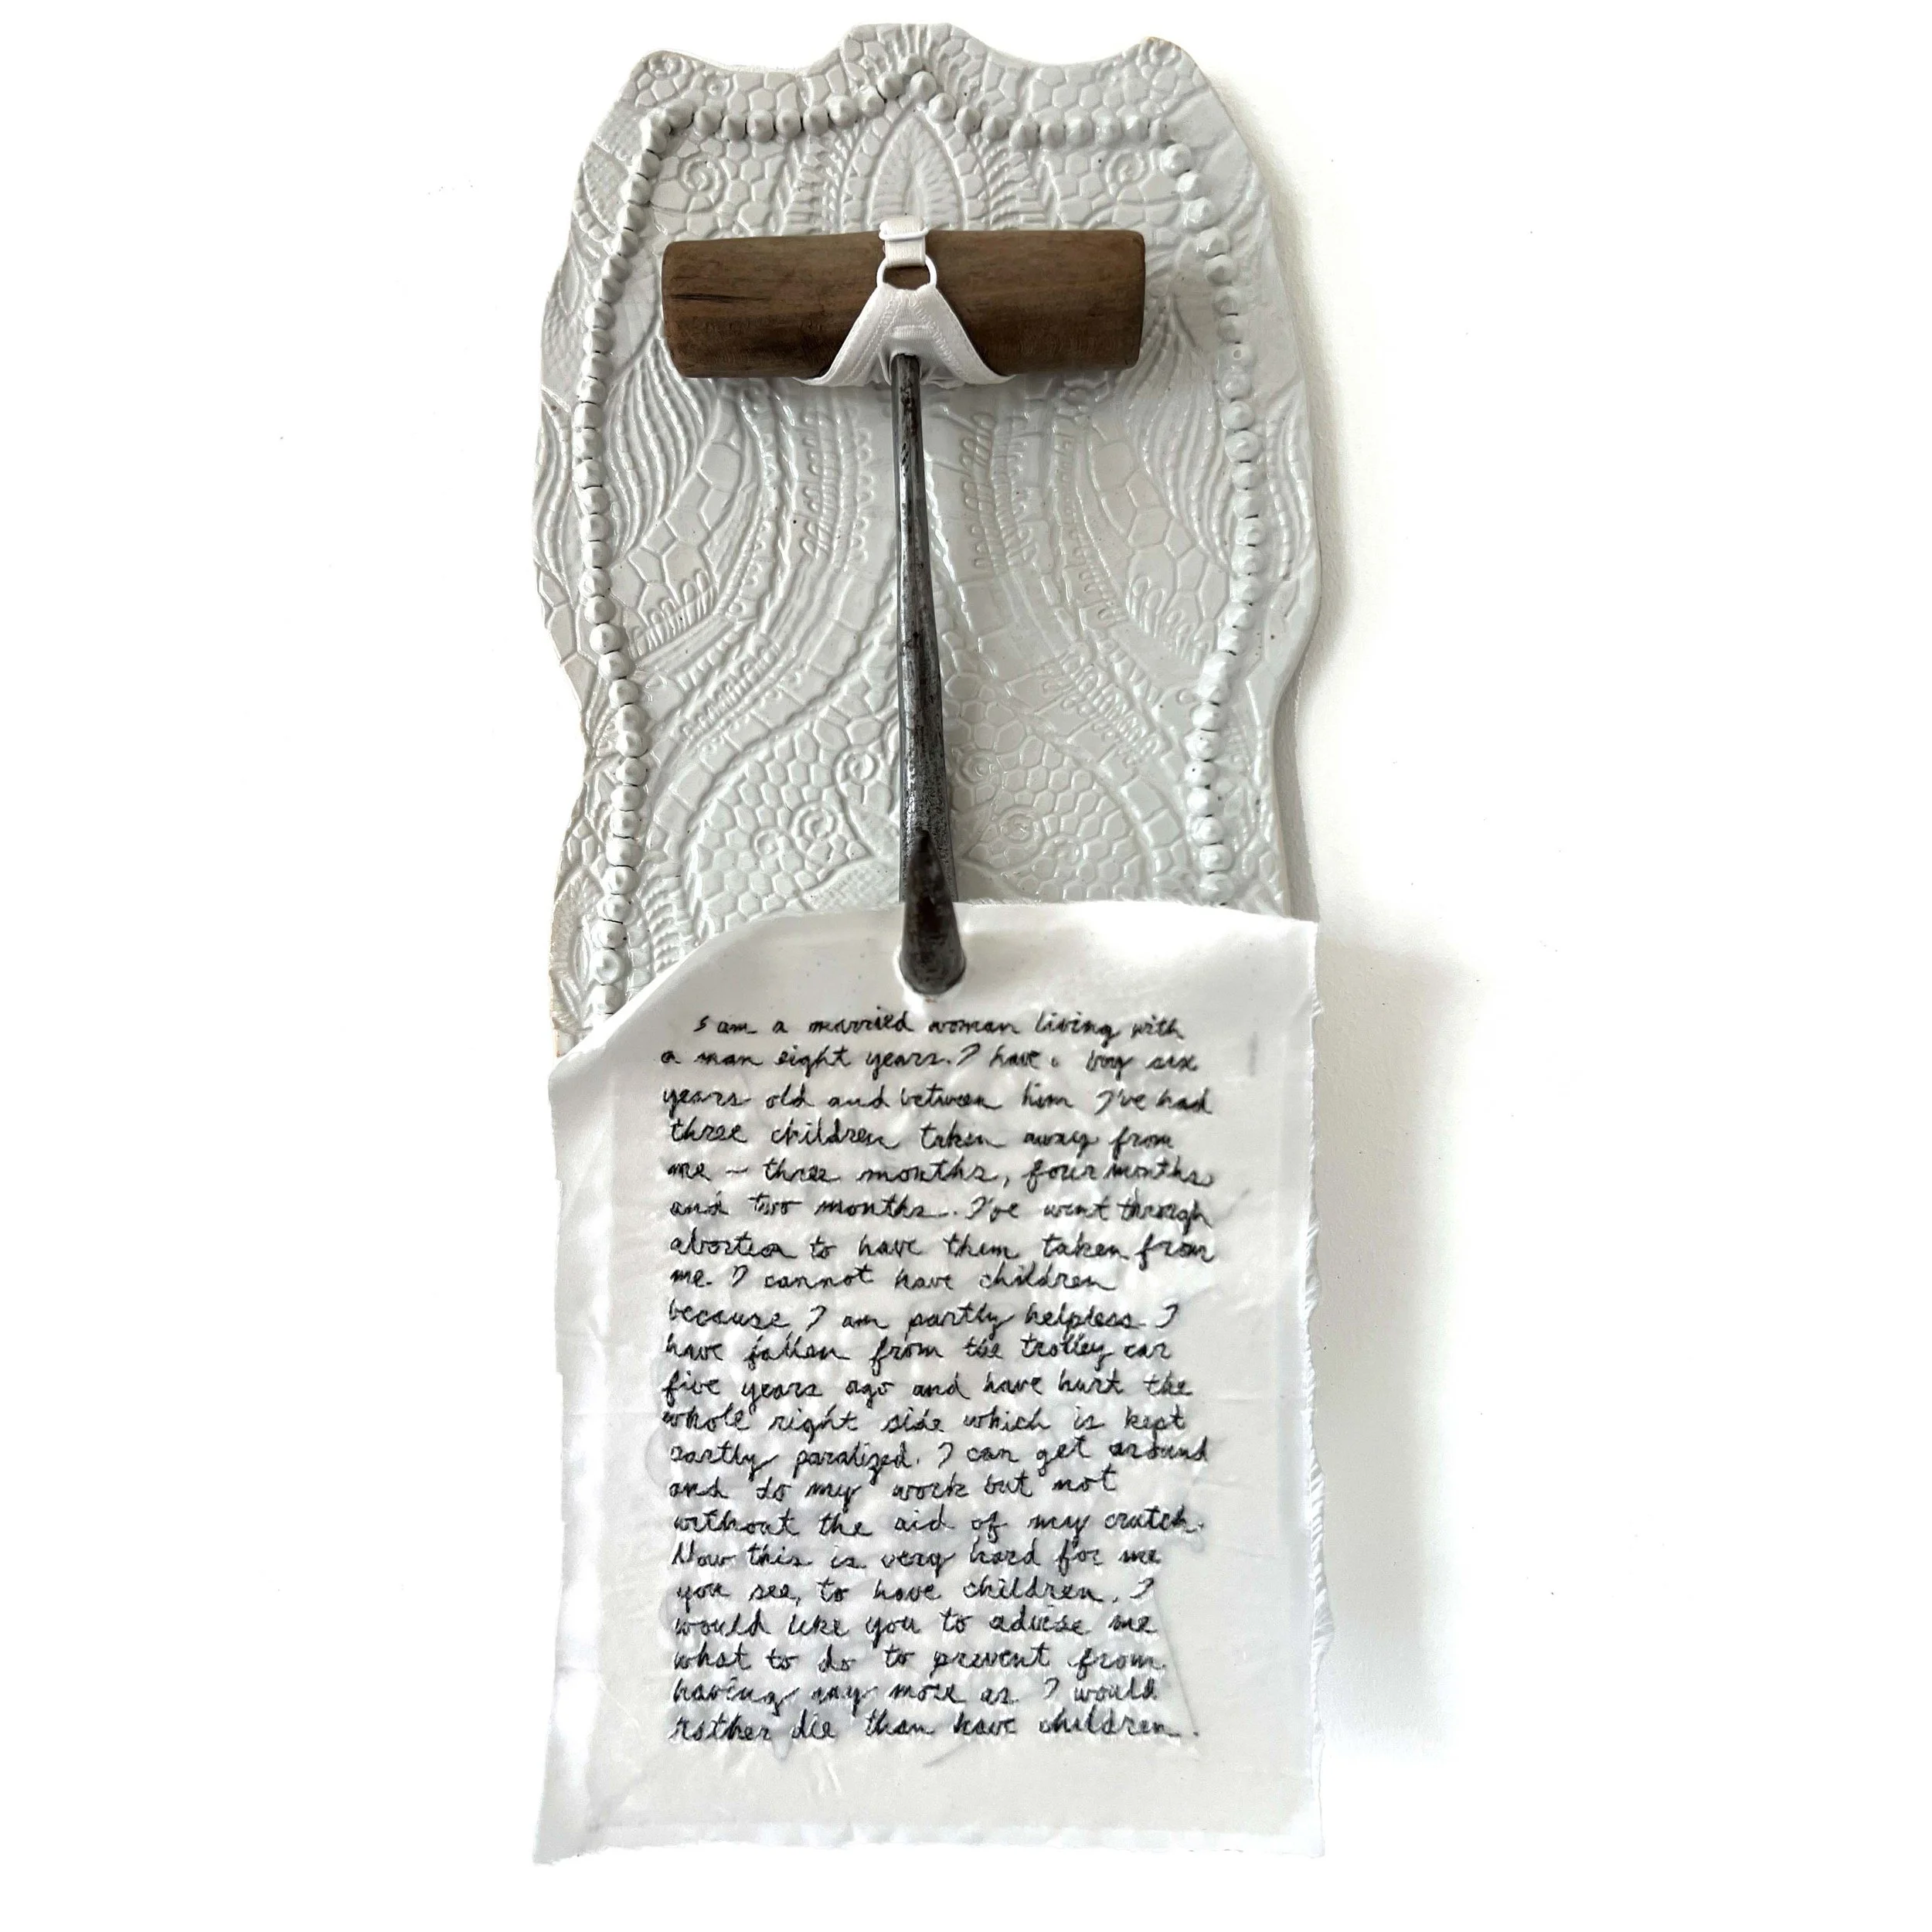 I am a married woman living with
a man eight years. I have a boy six
years old and between him I've had
three children taken away from
me - three months, four months
and two months. I've went through
abortion to have them taken from
me. I cannot have children
because I am partly helpless. I
have fallen from the trolley car
five years ago and have hurt the
whole right side which is kept
partly paralized. I can get around
and do my work but not
without the aid of my crutch.
Now this is very hard for me
you see, to have children. I
would like you to advise me
what to do to prevent from
having any more as I would
rather die than have children.